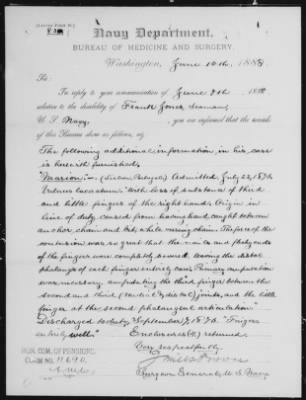 Navy Department,
BUREAU OF MEDICINE AND SURGERY,
Washington, June 10th, 1888
To
In reply to your communication of June 7th, 188
relative to the disability of Frank Jones, Seaman,
U. S. Navy, you are informed that the records
of this Bureau show as follows, viz:
The following additional information in his case
is herewith furnished,
"Marion":- Admitted July 22, 1876
Vulnus Laceratum with loss of substance of third
and little fingers of the right hand. Origin in
line of duty, caused from having hand caught between
anchor chain and while
contusion was so great that the and fleshy ends
of the fingers were completely severed, leaving the distal
phalanges of each finger entirely bare. Primary amputation
was necessary, amputating the third finger between the
second and third joints, and the little
finger at the second phalangeal articulation.
Discharged to duty September 7, 1876. "Fingers
entirely well".
Enclosures returned
Very respectfully,
Surgeon General, U. S. Navy
HON. COM. OF PENSIONS,
CLAIM NO.